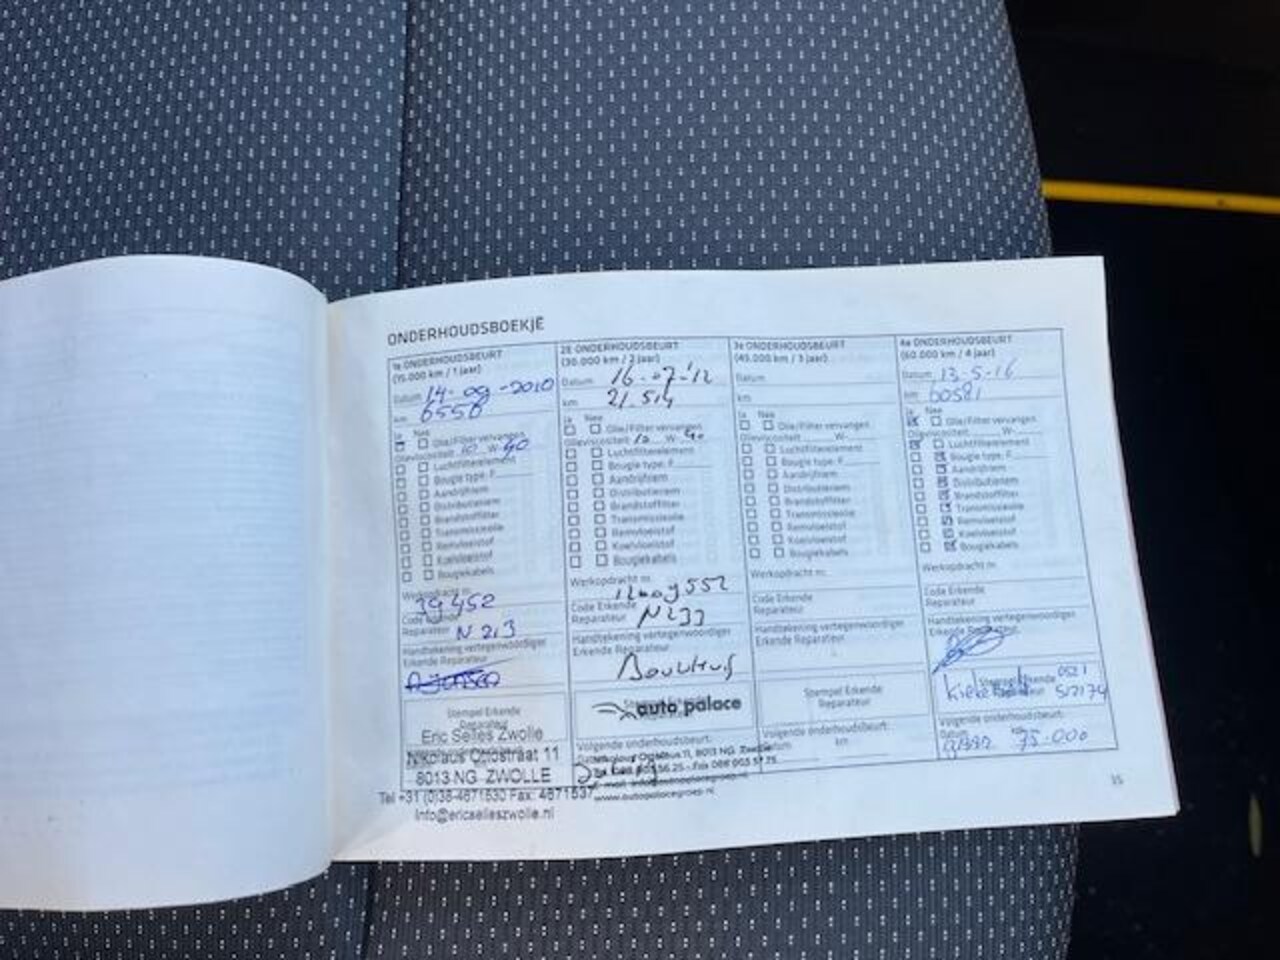 ONDERHOUDSBOEKJE
1e ONDERHOUDSBEURT
(15.000 km / 1 jaar)
Datum 14-09-2010
km 6550
Ja Nee
Olie/Filter vervangen
Olieviscositeit 10 W-40
Luchtfilterelement
Bougie type: F
Aandrijfriem
Distributieriem
Brandstoffilter
Transmissieolie
Remvloeistof
Koelvloeistof
Bougiekabels
Werkopdracht nr.
39452
Code Erkende
Reparateur N 213
Handtekening vertegenwoordiger
Erkende Reparateur
Stempel Erkende
Reparateur
Eric Selles Zwolle
Nikolaus Ottostraat 11
8013 NG ZWOLLE
Tel +31 (0)38-4671530 Fax: 4671537
Info@ericselleszwolle.nl
2E ONDERHOUDSBEURT
(30.000 km / 2 jaar)
Datum 16-07-'12
km 21.514
Ja Nee
Olie/Filter vervangen
Olieviscositeit 10 W-40
Luchtfilterelement
Bougie type: F
Aandrijfriem
Distributieriem
Brandstoffilter
Transmissieolie
Remvloeistof
Koelvloeistof
Bougiekabels
Werkopdracht nr.
Code Erkende
Reparateur N233
Handtekening vertegenwoordiger
Erkende Reparateur
auto palace
Volgende onderhoudsbeurt:
Ottostraat 11, 8013 NG Zwolle
www.autopalacegroep.nl
3e ONDERHOUDSBEURT
(45.000 km / 3 jaar)
Datum
km
Ja Nee
Olie/Filter vervangen
Olieviscositeit W-
Luchtfilterelement
Bougie type: F
Aandrijfriem
Distributieriem
Brandstoffilter
Transmissieolie
Remvloeistof
Koelvloeistof
Bougiekabels
Werkopdracht nr.
Code Erkende
Reparateur
Handtekening vertegenwoordiger
Erkende Reparateur
Stempel Erkende
Reparateur
Volgende onderhoudsbeurt:
Datum km
4e ONDERHOUDSBEURT
(60.000 km / 4 jaar)
Datum 13-5-16
km 60581
Ja Nee
Olie/Filter vervangen
Olieviscositeit W-
Luchtfilterelement
Bougie type: F
Aandrijfriem
Distributieriem
Brandstoffilter
Transmissieolie
Remvloeistof
Koelvloeistof
Bougiekabels
Werkopdracht nr.
Code Erkende
Reparateur
Handtekening vertegenwoordiger
Erkende Reparateur
Stempel Erkende 0521
Reparateur 517174
Volgende onderhoudsbeurt:
Datum km
75.000
15